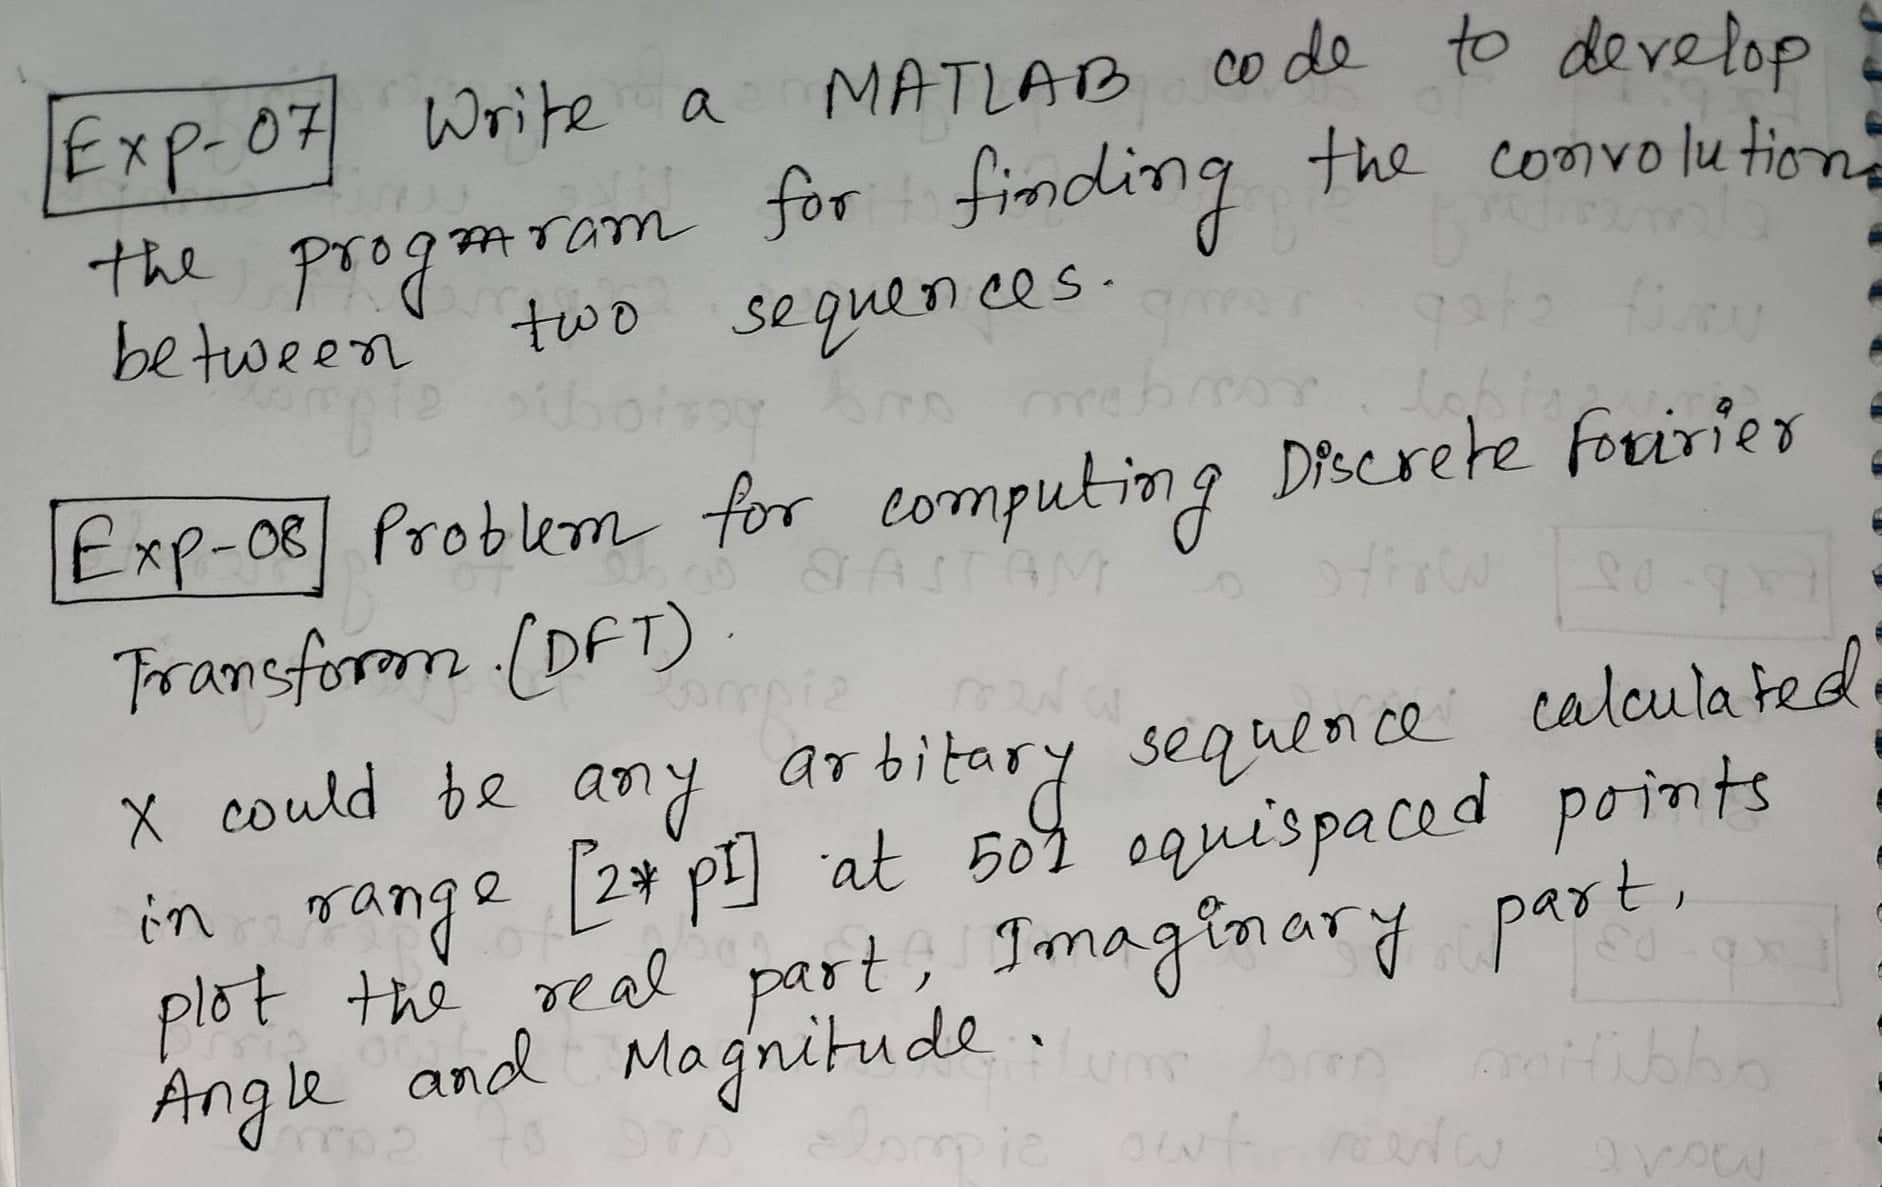 Exp-07 Write a MATLAB code to develop
the program for finding the convolution
between two sequences.
Exp-08 Problem for computing Discrete Fourier
Transform. (DFT).
X could be any arbitary sequence calculated
in range [2*pI] at 501 equispaced points
plot the real part, Imaginary part,
Angle and Magnitude.